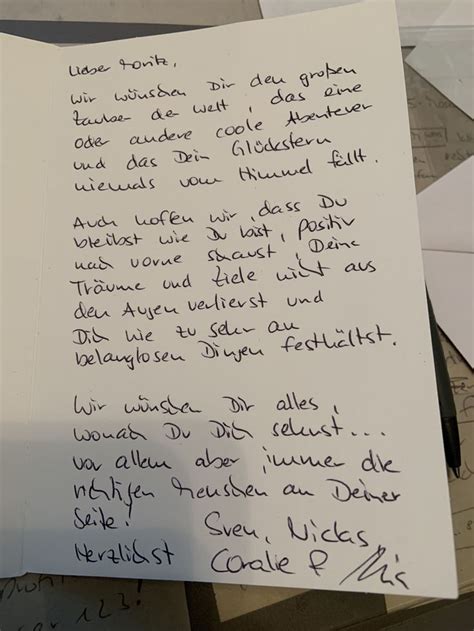 Lieber Moritz,
Wir wünschen Dir den großen
Zauber der Welt, das eine
oder andere coole Abenteuer
und das Dein Glückstern
niemals vom Himmel fällt.
Auch hoffen wir, dass Du
bleibst wie Du bist, positiv
nach vorne schaust, Deine
Träume und Ziele nicht aus
den Augen verlierst und
Dich nie zu sehr an
belanglosen Dingen festhältst.
Wir wünschen Dir alles,
wonach Du Dich sehnst...
vor allem aber immer die
richtigen Menschen an Deiner
Seite! Sven, Niclas,
Herzlichst Coralie & Mia
123!